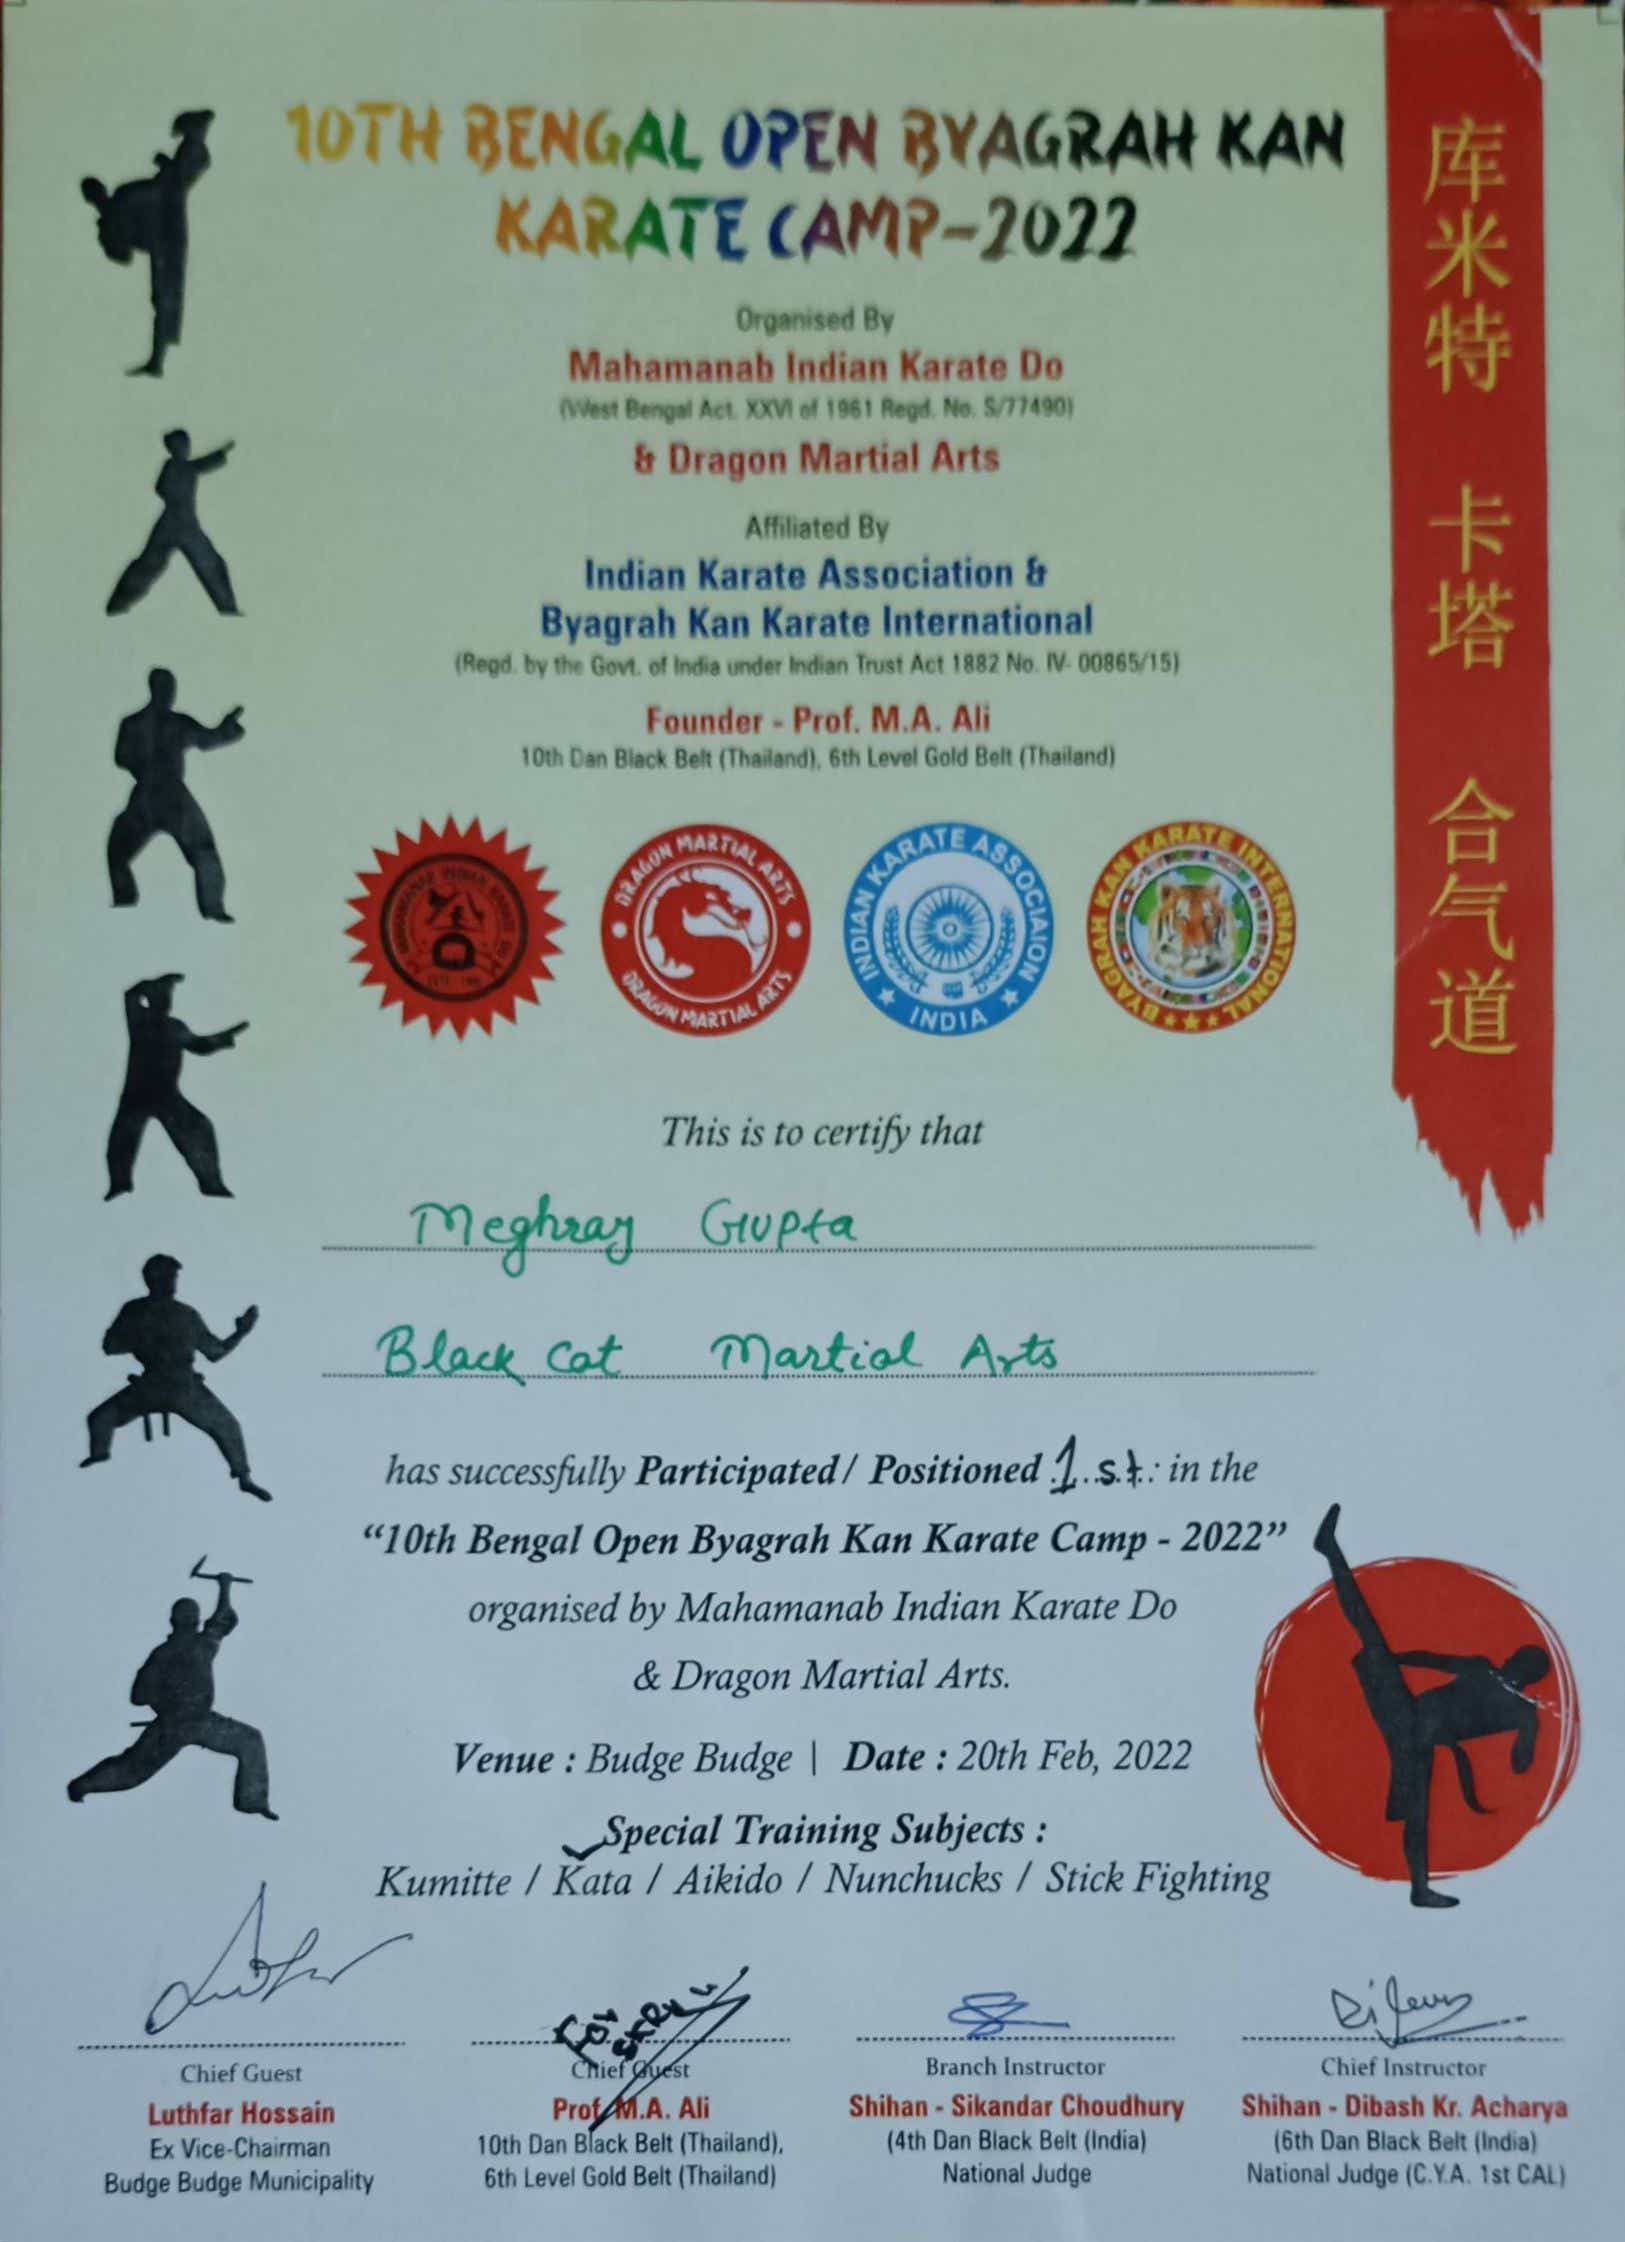 10TH BENGAL OPEN BYAGRAH KAN
KARATE CAMP-2022
Organised By
Mahamanab Indian Karate Do
(West Bengal Act. XXVI of 1961 Regd. No. S/77490)
& Dragon Martial Arts
Affiliated By
Indian Karate Association &
Byagrah Kan Karate International
(Regd. by the Govt. of India under Indian Trust Act 1882 No. IV- 00865/15)
Founder - Prof. M.A. Ali
10th Dan Black Belt (Thailand), 6th Level Gold Belt (Thailand)
库米特 卡塔 合气道
MAHAMANAB INDIAN KARATE DO
DRAGON MARTIAL ARTS
DRAGON MARTIAL ARTS
INDIAN KARATE ASSOCIAION
INDIA
BYAGRAH KAN KARATE INTERNATIONAL
This is to certify that
Meghraj Gupta
Black Cat Martial Arts
has successfully Participated/ Positioned 1st in the
“10th Bengal Open Byagrah Kan Karate Camp - 2022”
organised by Mahamanab Indian Karate Do
& Dragon Martial Arts.
Venue : Budge Budge | Date : 20th Feb, 2022
Special Training Subjects :
Kumitte / Kata / Aikido / Nunchucks / Stick Fighting
Chief Guest
Luthfar Hossain
Ex Vice-Chairman
Budge Budge Municipality
Chief Guest
Prof. M.A. Ali
10th Dan Black Belt (Thailand),
6th Level Gold Belt (Thailand)
Branch Instructor
Shihan - Sikandar Choudhury
(4th Dan Black Belt (India)
National Judge
Chief Instructor
Shihan - Dibash Kr. Acharya
(6th Dan Black Belt (India)
National Judge (C.Y.A. 1st CAL)